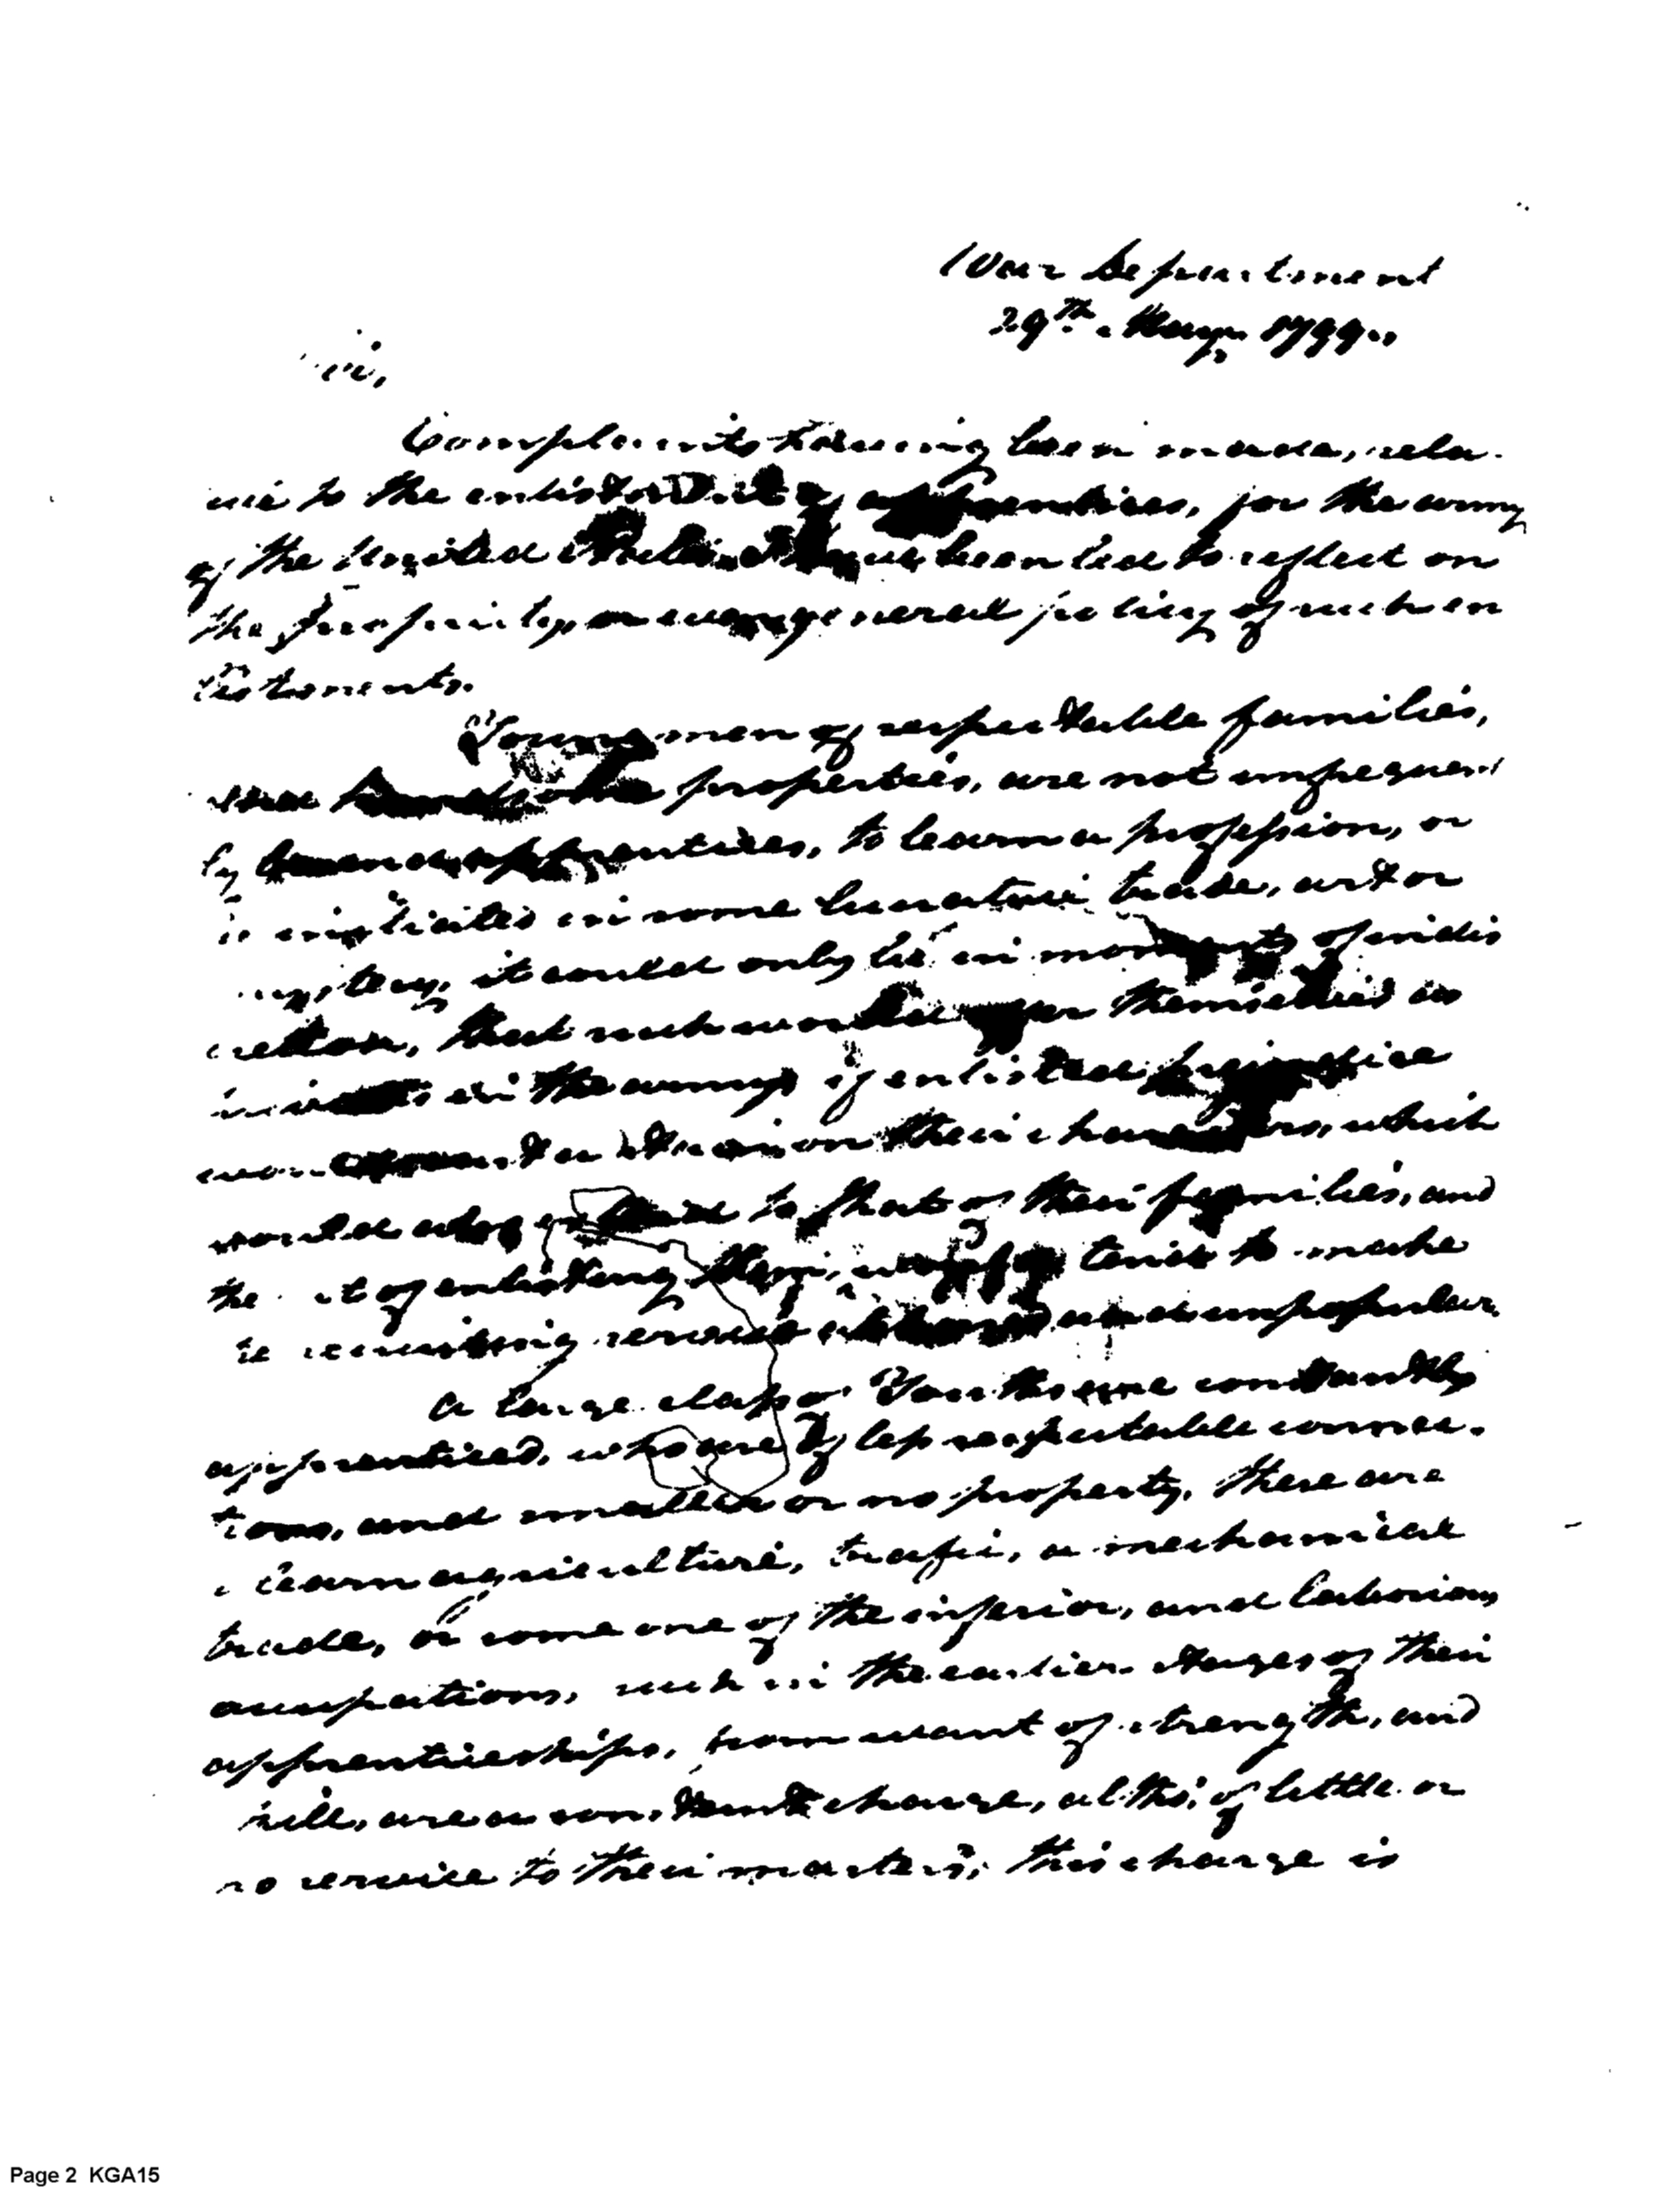 War Department
29th. May. 1799.
Sir,
Complaints having been made, rela-
tive to the enlistment of apprentices, for the army
of the United States, I have been led to reflect on
the propriety, or even general policy of such en
listments.
Young men of respectable families,
and handsome properties, are not unfrequent
ly bound apprentices, to learn a profession, or
be initiated in some lucrative trade, art or
mystery, it could only be in moments of indis
cretion, that such would offer themselves as
in the army, if enlisted
on their characters, which
would also to that of their families, and
the act of enlisting them, would tend to make
the recruiting service and unpopular.
A large class of Youths are constantly
apprenticed, who are of less respectable connec-
tions, and smaller or no property, these are
learn agriculture, trafic, a mechanical
trade, or some one of the inferior, and laborious
occupations, such in the earlier stages of their
apprenticeships, from want of strength, and
skill, are a constant charge, altho' of little or
no service to their masters; this charge is
Page 2 KGA15